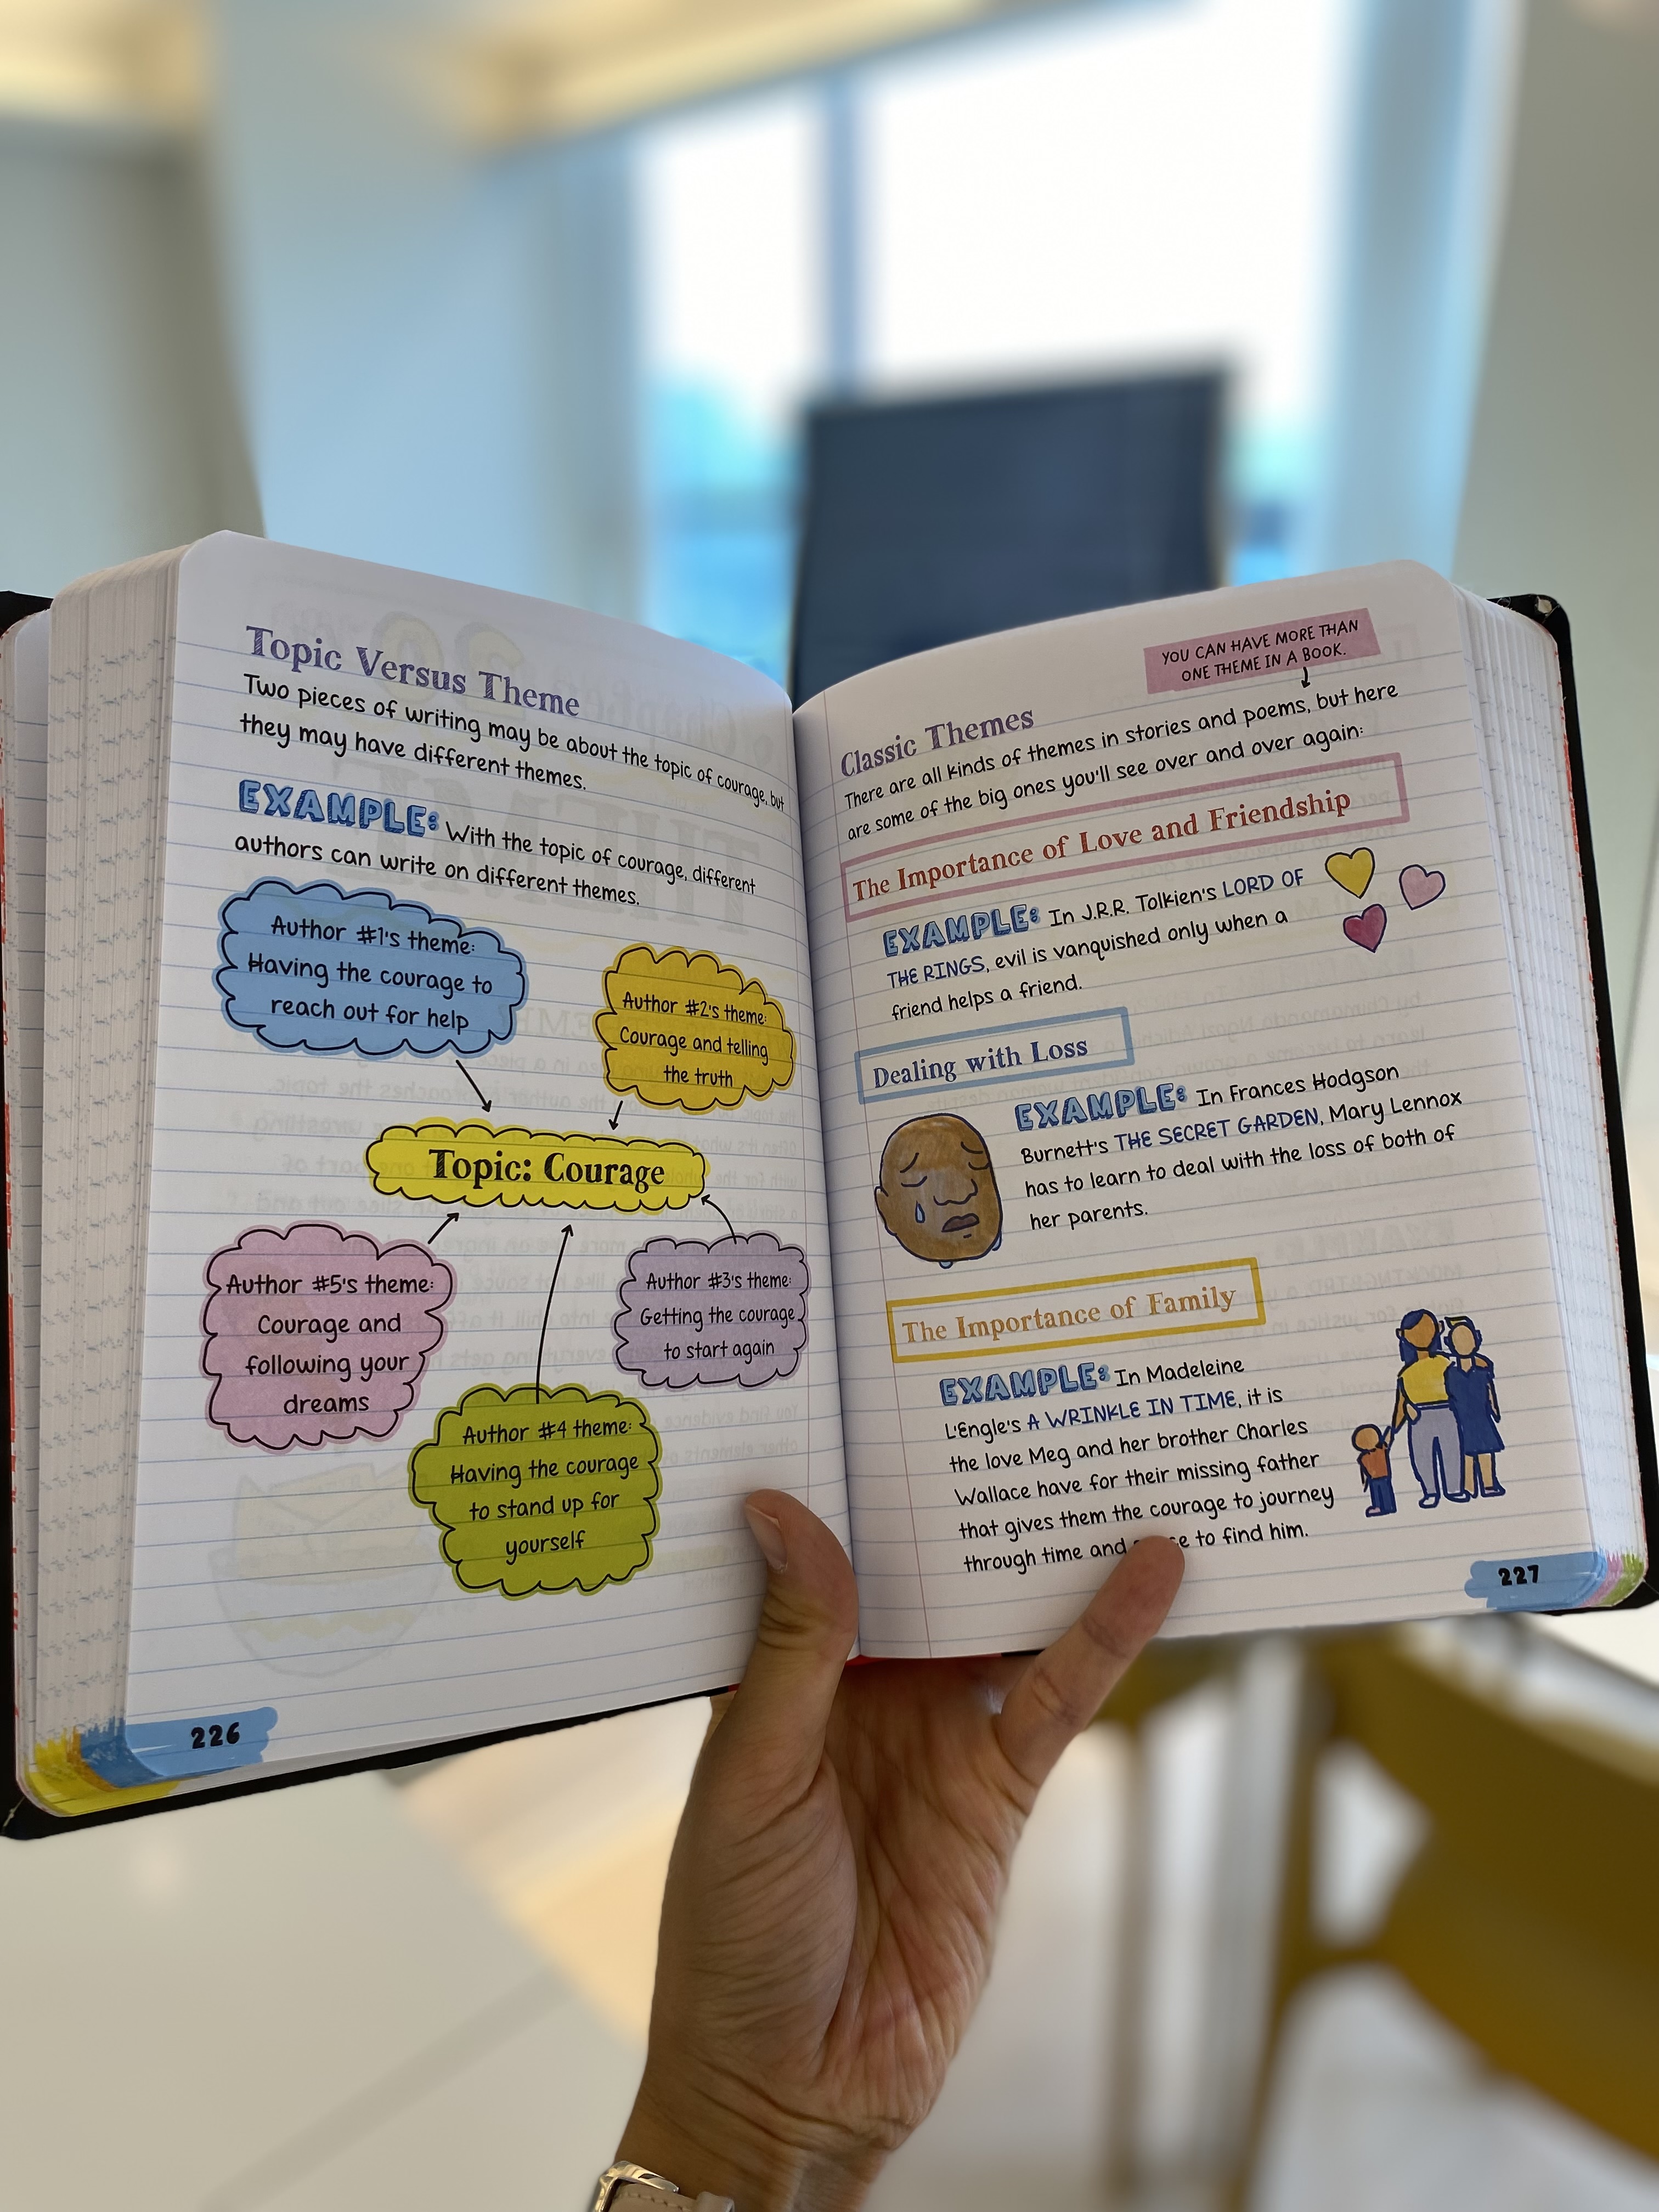 Topic Versus Theme
Two pieces of writing may be about the topic of courage, but
they may have different themes.
EXAMPLE: With the topic of courage, different
authors can write on different themes.
Author #1's theme:
Having the courage to
reach out for help
Author #2's theme:
Courage and telling
the truth
Topic: Courage
Author #5's theme:
Courage and
following your
dreams
Author #3's theme:
Getting the courage
to start again
Author #4 theme:
Having the courage
to stand up for
yourself
226
YOU CAN HAVE MORE THAN
ONE THEME IN A BOOK.
Classic Themes
There are all kinds of themes in stories and poems, but here
are some of the big ones you'll see over and over again:
The Importance of Love and Friendship
EXAMPLE: In J.R.R. Tolkien's LORD OF
THE RINGS, evil is vanquished only when a
friend helps a friend.
Dealing with Loss
EXAMPLE: In Frances Hodgson
Burnett's THE SECRET GARDEN, Mary Lennox
has to learn to deal with the loss of both of
her parents.
The Importance of Family
EXAMPLE: In Madeleine
L'Engle's A WRINKLE IN TIME, it is
the love Meg and her brother Charles
Wallace have for their missing father
that gives them the courage to journey
through time and to find him.
227